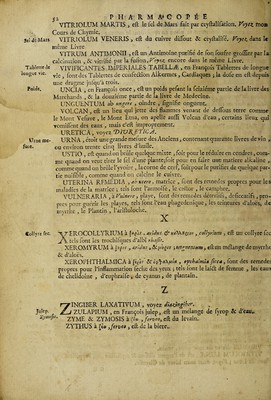 32 PHARMACOPÉE
VITRIOLUM MARTIS, est le sel de Mars fait par crystallisation. Voyez mon
Cours de Chymie.
Sel de Mars. VITRIOLUM VENERIS, est du cuivre dissout & crystallisé. Voyez dans le
même Livre
VITRUM ANTIMONII, est un Antimoine purifié de son soufre grossier par la
calcination, & vitrifié par la fusion. Voyez encore dans le même Livre.
Tablettes de longue vie. VIVIFICANTES IMPERIALES TABELLÆ, en François Tablettes de longue
vie, sont des Tablettes de confection Alkermes, Cardiaques; la dose en est depuis
une dragme jusqu'à trois.
Poids. UNCIA, en François once, est un poids pesant la seiziéme partie de la livre des
Marchands, & la douziéme partie de la livre de Medecine.
UNGUENTUM ab ungere, oindre, signifie onguent.
VOLCAN, est un lieu qui jette des flammes venant de dessous terre comme
le Mont Vesuve, le Mont Etna, on apelle aussi Volcan d'eau, certains lieux qui
vomissent des eaux, mais c'est improprement.
URETICA, voyez DIURETICA.
Urne mesure. URNA, étoit une grande mesure des Anciens, contenant quarante livres de vin
ou environ trente cinq livres d'huile.
USTIO, est quand on brûle quelque mixte, soit pour le réduire en cendres, comme
quand on veut tirer le sel d'une plante, soit pour en faire une matiere alkaline,
comme quand on brûle l'yvoire, la corne de cerf, soit pour le purifier de quelque partie
nuisible, comme quand on calcine le cuivre.
UTERINA REMEDIA, sont des remedes propres pour les
maladies de la matrice, tels sont l'armoise, le castor, le camphre.
VULNERARIA, à Vulnere, playe, sont des remedes détersifs, desiccatifs, propres
pour guerir les playes, tels sont l'eau phagedenique, les teintures d'aloës, de
myrrhe, le Plantin, l'aristoloche.
X
Collyre sec. XEROCOLLYRIUM à ξηρὸς, aridus & collyrium, est un collyre sec
tels sont les trochisques d'albi rhasis.
XEROMYRUM à ξηρὸς, aridus, & unguentum, est un mélange de myrrhe
& d'aloës.
XEROPHTHALMICA à ξηρὸς & ophthalmia sicca, sont des remedes
propres pour l'inflammation seche des yeux; tels sont le lait de femme, les eaux
de chelidoine, d'euphraise, de cyanus, de plantain.
Z
ZINGIBER LAXATIVUM, voyez diazingiber.
Julep. ZULAPIUM, en François julep, est un mélange de syrop & d'eau.
Zymosis. ZYME & ZYMOSIS à ζέω, ferveo, est du levain.
ZYTHUS à ζέω, ferveo, est de la biere.